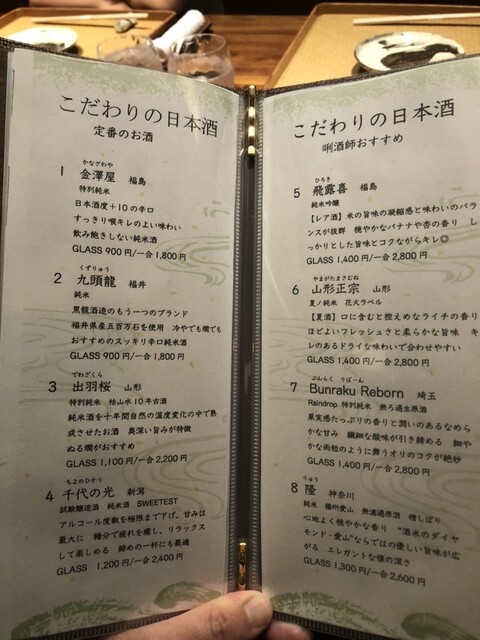 こだわりの日本酒
定番のお酒
かなざわや
1 金澤屋 福島
特別純米
日本酒度+10の辛口
すっきり喉キレのよい味わい
飲み飽きしない純米酒
GLASS 900円/一合 1,800円
くずりゅう
2 九頭龍 福井
純米
黒龍酒造のもう一つのブランド
福井県産五百万石を使用 冷やでも燗でも
おすすめのスッキリ辛口純米酒
GLASS 900円/一合 1,800円
でわざくら
3 出羽桜 山形
特別純米 枯山水10年古酒
純米酒を十年間自然の温度変化の中で熟
成させたお酒 奥深い旨みが特徴
ぬる燗がおすすめ
GLASS 1,100円/一合 2,200円
ちよのひかり
4 千代の光 新潟
試験醸造酒 純米酒 SWEETEST
アルコール度数を極限まで下げ、甘みは
最大に 糖分で疲れを癒し、リラックス
して楽しめる 締めの一杯にも最適
GLASS 1,200円/一合 2,400円
こだわりの日本酒
唎酒師おすすめ
ひろき
5 飛露喜 福島
純米吟醸
【レア酒】米の旨味の凝縮感と味わいのバラ
ンスが抜群 穏やかなバナナや杏の香り し
っかりとした旨味とコクながらキレ◎
GLASS 1,400円/一合 2,800円
やまがたまさむね
6 山形正宗 山形
夏ノ純米 花火ラベル
【夏酒】口に含むと控えめなライチの香り
ほどよいフレッシュさと柔らかな旨味 キ
レのあるドライな味わいで合わせやすい
GLASS 1,400円/一合 2,800円
ぶんらく りぼーん
7 Bunraku Reborn 埼玉
Raindrop 特別純米 無ろ過生原酒
果実感たっぷりの香りと潤いのあるなめら
かな甘み 繊細な酸味が引き締める 細や
かな雨粒のように舞うオリのコクが絶妙
GLASS 1,400円/一合 2,800円
りゅう
8 隆 神奈川
純米 播州愛山 無濾過原酒 槽しぼり
心地よく穏やかな香り “酒米のダイヤ
モンド・愛山”ならではの優しい旨味が広
がる エレガントな懐の深さ
GLASS 1,300円/一合 2,600円